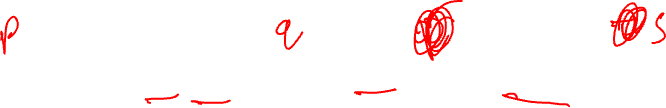 p q s